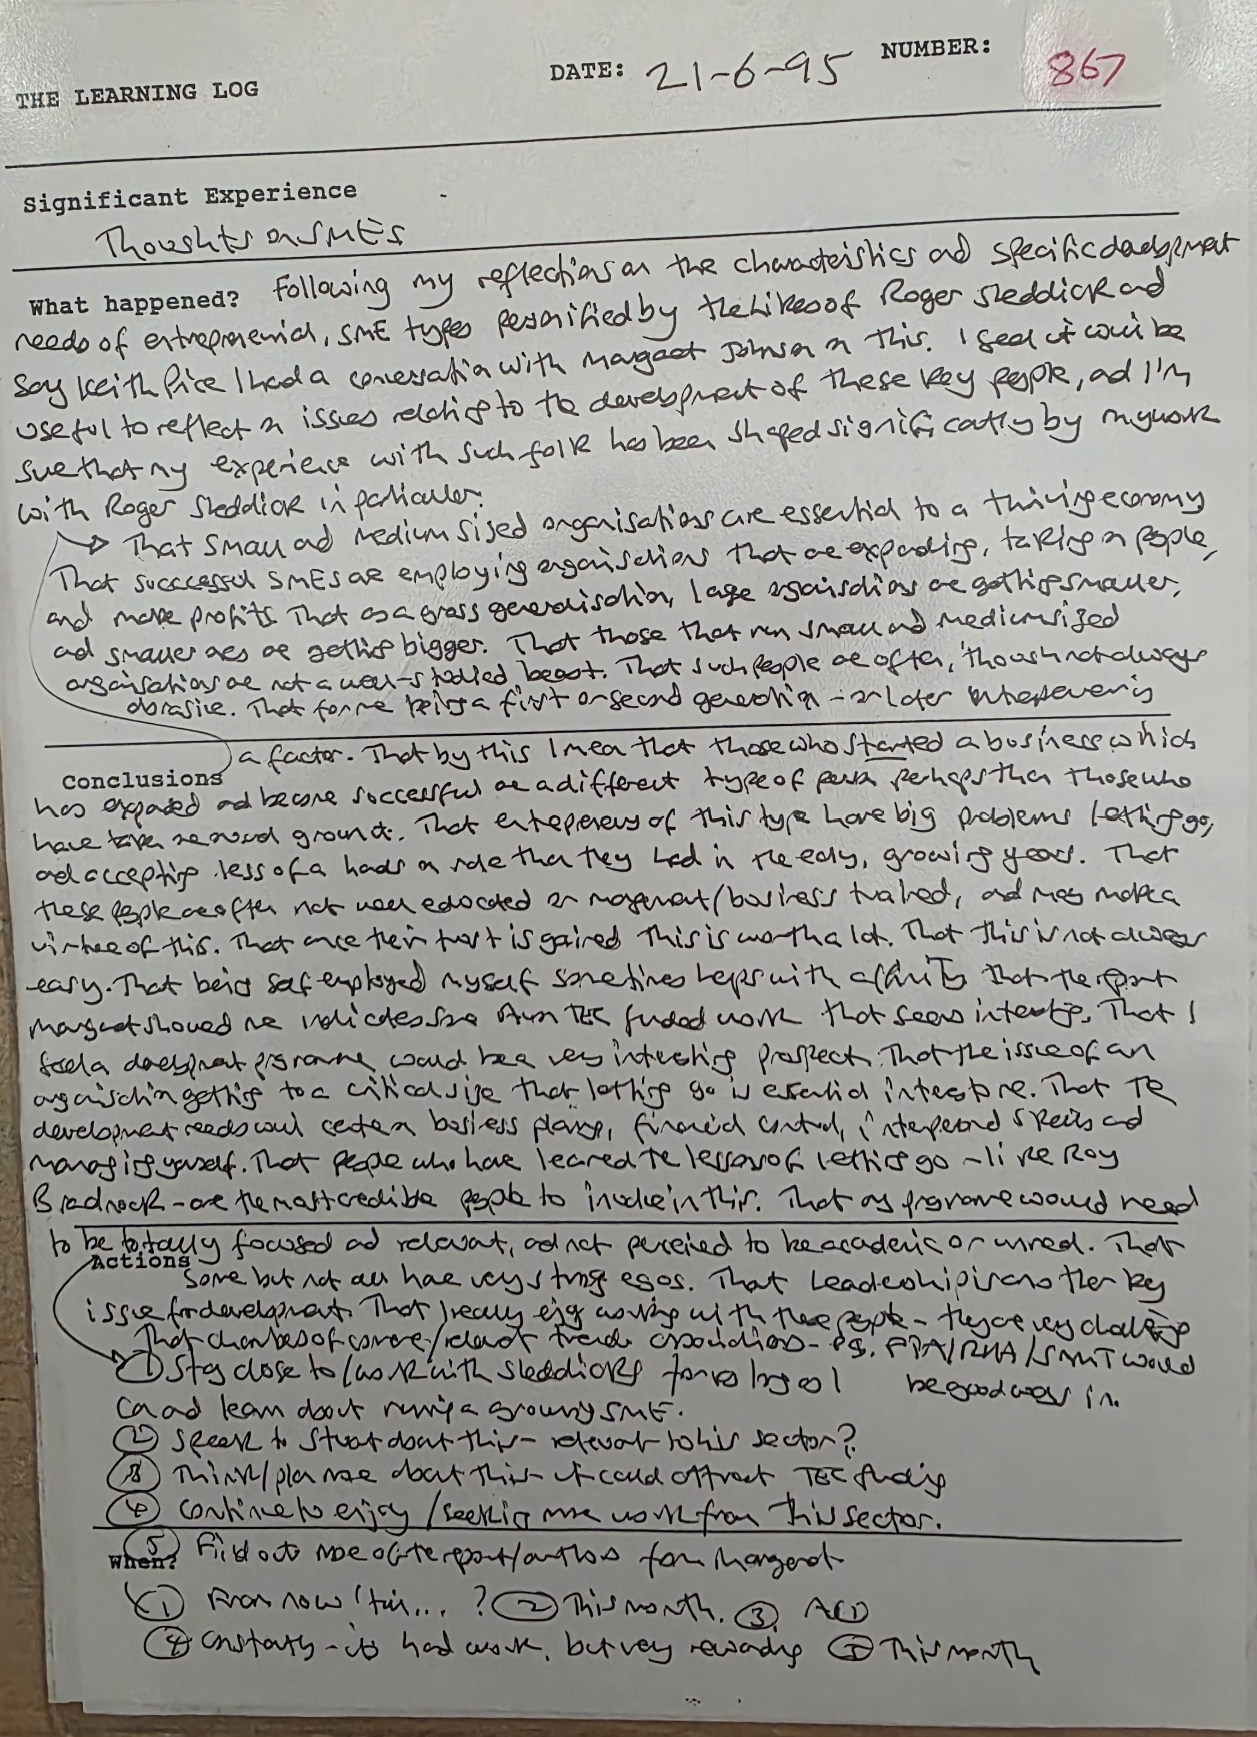 THE LEARNING LOG DATE: 21-6-95 NUMBER: 867
Significant Experience
Thoughts on SMEs
What happened? Following my reflections on the characteristics and specific development
needs of entrepreneurial, SME types personified by the likes of Roger Sleddick and
say Keith Price I had a conversation with Margaret Johnson on this. I feel it could be
useful to reflect on issues relating to the development of these key people, and I'm
sure that my experience with such folk has been shaped significantly by my work
with Roger Sleddick in particular.
That small and medium sized organisations are essential to a thriving economy
That successful SMEs are employing organisations that are expanding, taking on people,
and make profits. That as a gross generalisation, large organisations are getting smaller,
and smaller ones are getting bigger. That those that run small and medium sized
organisations are not a well-studied beast. That such people are often, though not always
abrasive. That for me being a first or second generation - or later entrepreneur is
a factor. That by this I mean that those who started a business which
Conclusions
has expanded and become successful are a different type of person perhaps than those who
have taken second ground. That entrepreneurs of this type have big problems letting go,
and accepting less of a hands on role than they had in the early, growing years. That
these people are often not well educated or management/business trained, and may make a
virtue of this. That once their trust is gained this is worth a lot. That this is not always
easy. That being self employed myself sometimes helps with affinity That the report
Margaret showed me indicates some TEC funded work that seems interesting. That I
feel a development programme would be a very interesting prospect. That the issue of an
organisation getting to a critical size that letting go is essential interests me. That the
development needs could centre on business planning, financial control, interpersonal skills and
managing yourself. That people who have learned the lesson of letting go - like Roy
Bradnock - are the most credible people to involve in this. That any programme would need
to be totally focused and relevant, and not perceived to be academic or unreal. That
Actions
some but not all have very strong egos. That leadership is another key
issue for development. That I really enjoy working with these people - they are very challenging
That chambers of commerce/relevant trade associations - eg. /RHA/SMMT would
be good ways in.
① Stay close to/work with Sleddicks for as long as I
can and learn about running a growing SME.
② Speak to Stuart about this - relevant to his sector?
③ Think/plan more about this - it could attract TEC funding
④ Continue to enjoy/seeking more work from this sector.
⑤ Find out more of the report/authors from Margaret
When?
① From now 'till... ? ② This month. ③
④ Constantly - its hard work, but very rewarding ⑤ This month